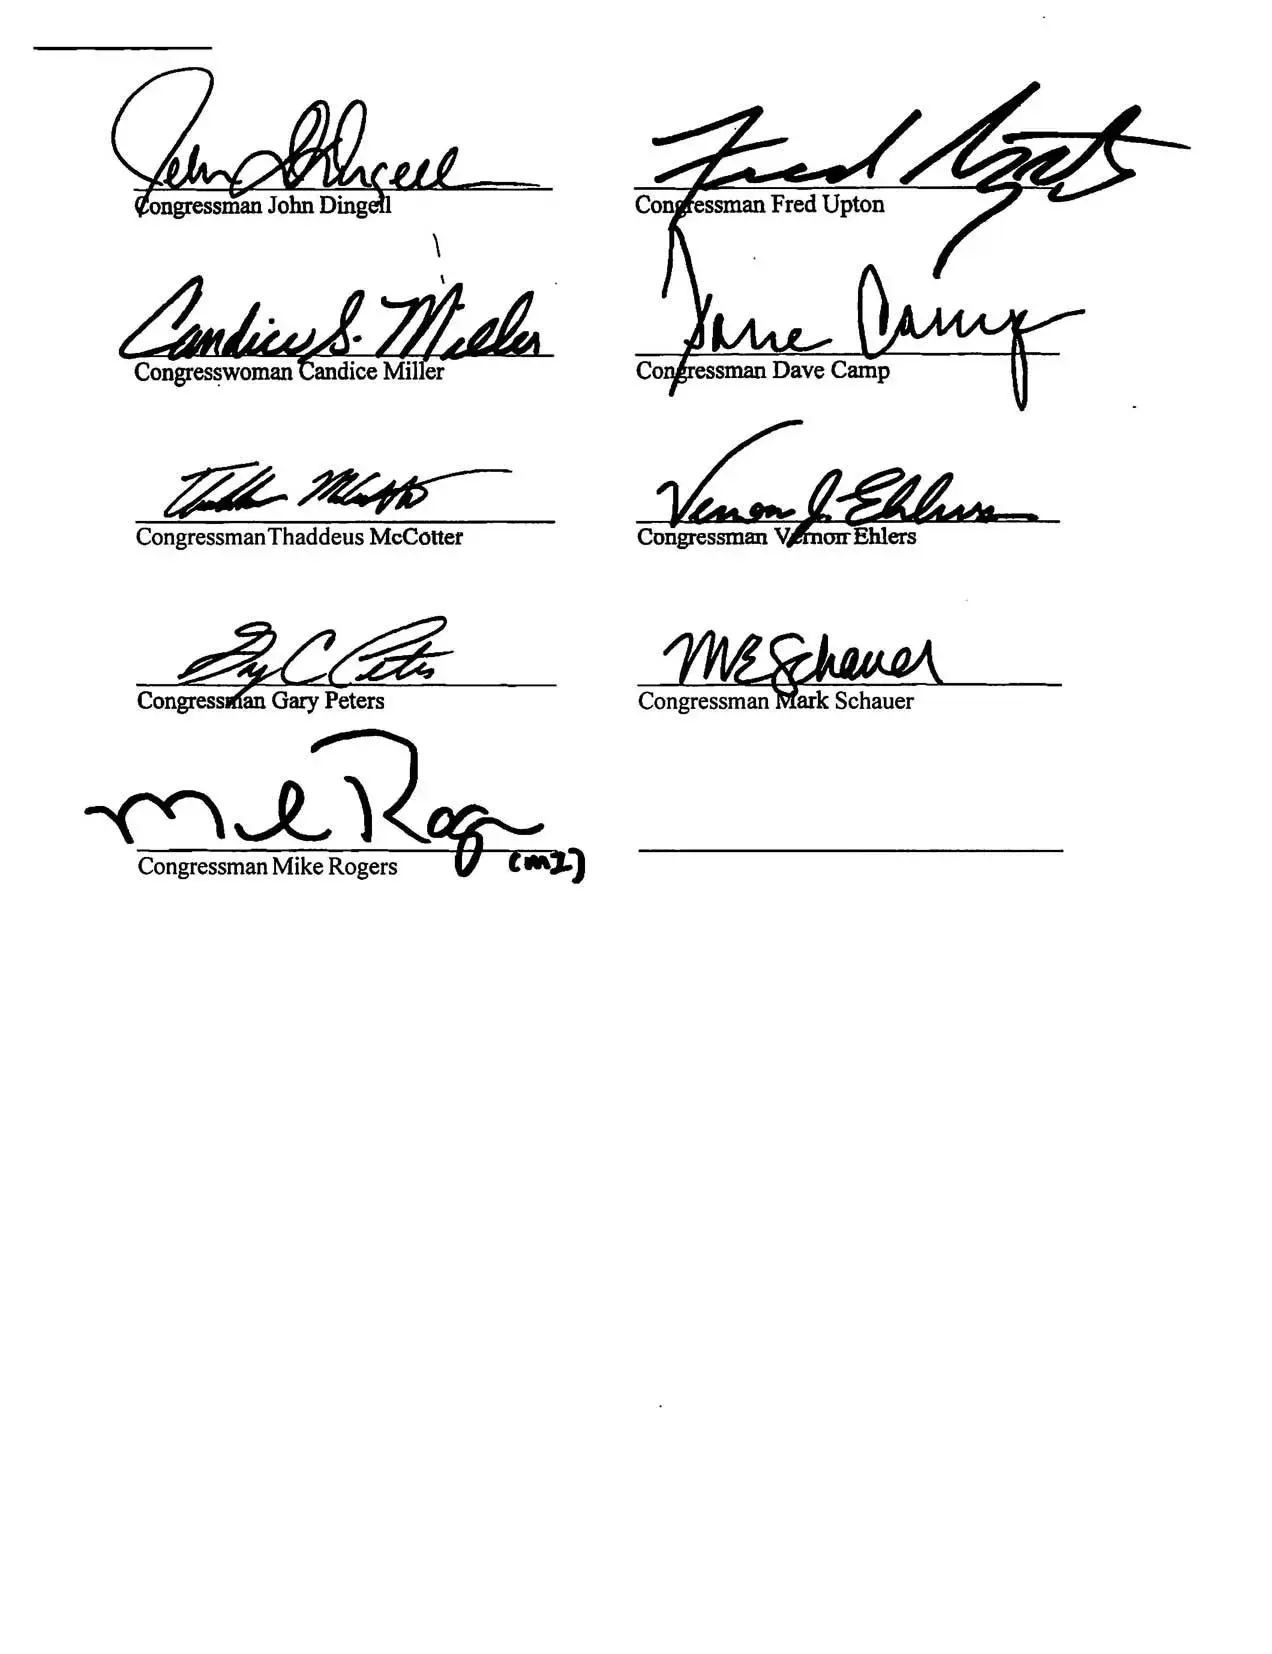 John D Dingell
Fred Upton
Congressman John Dingell
Congressman Fred Upton
Candice S. Miller
Dave Camp
Congresswoman Candice Miller
Congressman Dave Camp
Thaddeus McCotter
Vernon J. Ehlers
Congressman Thaddeus McCotter
Congressman Vernon Ehlers
Gary C Peters
M E Schauer
Congressman Gary Peters
Congressman Mark Schauer
Mike Rogers
Congressman Mike Rogers (MI)